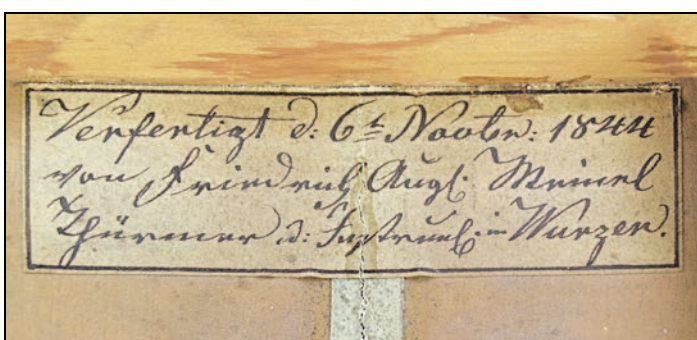 Verfertigt d: 6t Novbr: 1844
von Friedrich Aug: Meinel
Thürmer u: in Wurzen.